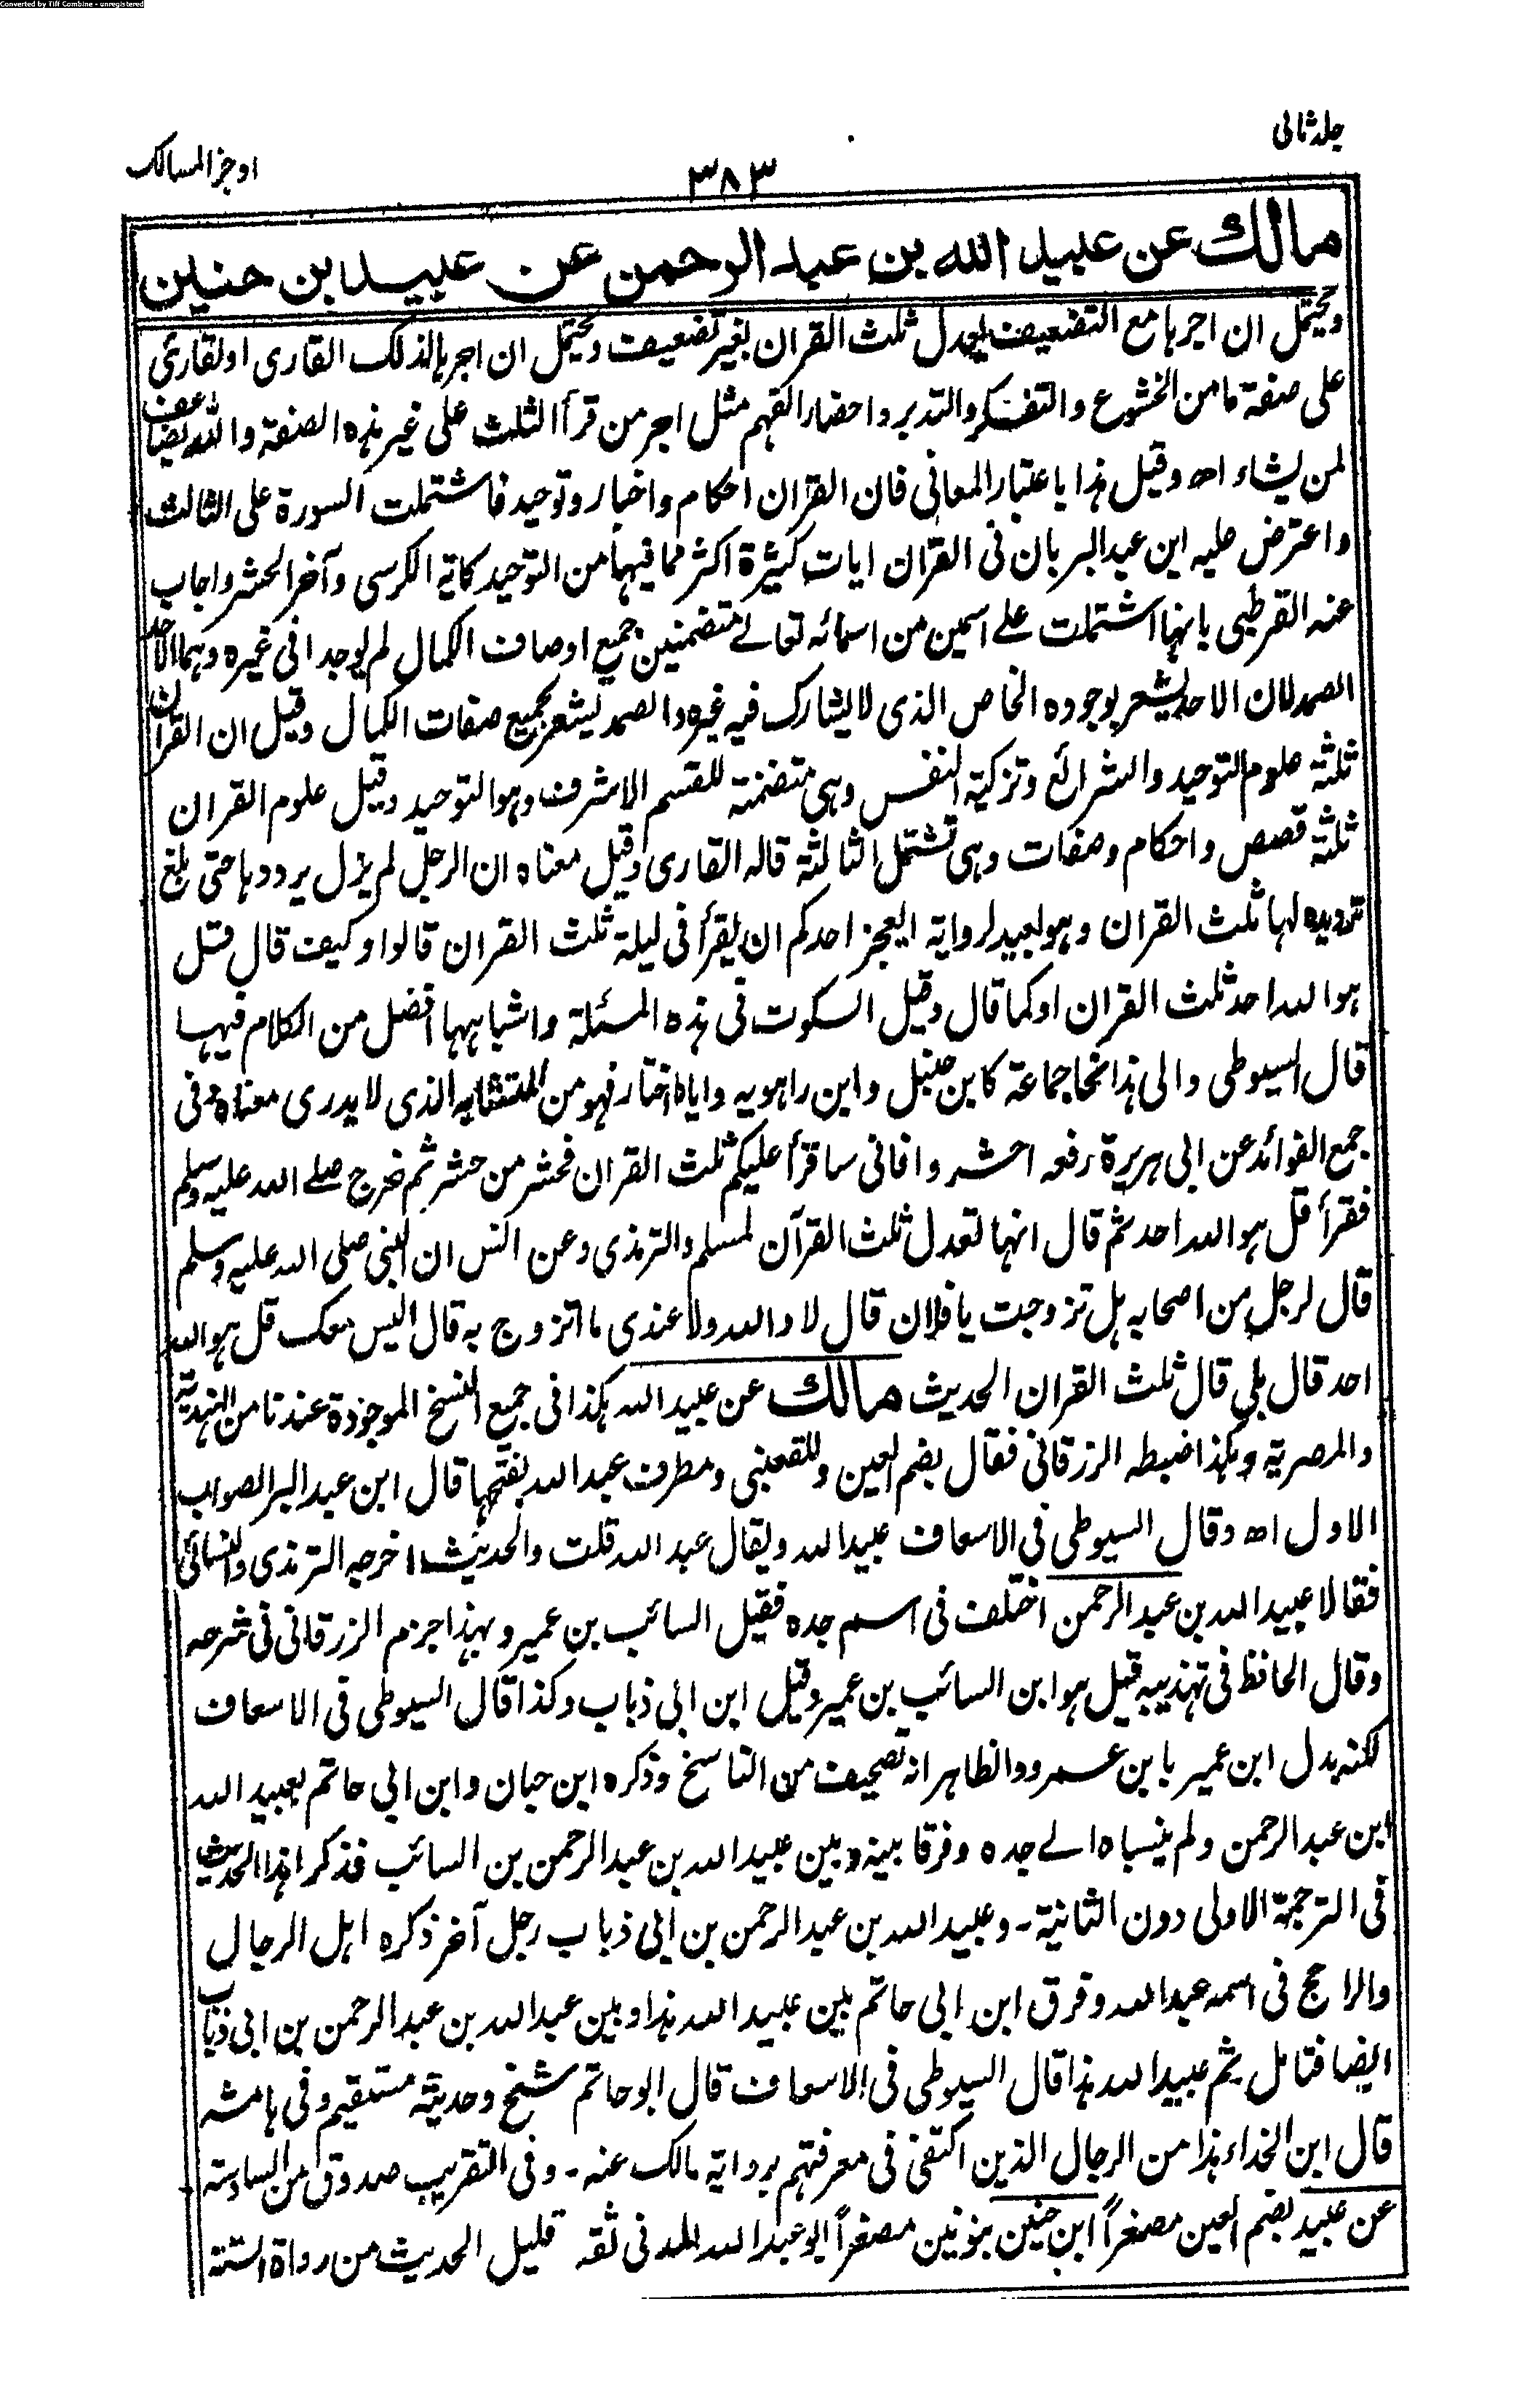 Converted by Tiff Combine - unregistered
جلد ثانی
٣٨٣
اوجز المسالک
مالك عن عبيد الله بن عبد الرحمن عن عبيد بن حنين
ويحتمل ان اجرها مع التضعيف يعدل ثلث القران بغير تضعيف ويحتمل ان اجرها لذلك القارى او لقارئ
على صفة ما من الخشوع والتفكر والتدبر واحضار الفهم مثل اجر من قرأ الثلث على غير هذه الصفة والله يضاعف
لمن يشاء اھ وقيل هذا باعتبار المعانى فان القران احكام واخبار وتوحيد فاشتملت السورة على الثالث
واعترض عليه ابن عبد البر بان فى القران ايات كثيرة اكثر مما فيها من التوحيد كاية الكرسى وآخر الحشر واجاب
عنه القرطبى بانها اشتملت على اسمين من اسمائه تعالے متضمنين جميع اوصاف الكمال لم يوجدا فى غيره وهما الاحد
الصمد لان الاحد يشعر بوجوده الخاص الذى لا يشارك فيه غيره والصمد يشعر بجميع صفات الكمال وقيل ان القران
ثلثة علوم التوحيد والشرائع وتزكية النفس وهى متضمنة للقسم الاشرف وهو التوحيد وقيل علوم القران
ثلثة قصص واحكام وصفات وهى تشتمل الثالثة قاله القارى وقيل معناه ان الرجل لم يزل يرددها حتى بلغ
ترديده لها ثلث القران وهو بعيد لرواية ايعجز احدكم ان يقرأ فى ليلة ثلث القران قالوا وكيف قال قل
هو الله احد ثلث القران او كما قال وقيل السكوت فى هذه المسئلة واشباهها افضل من الكلام فيها
قال السيوطى والى هذا نحا جماعة كابن حنبل وابن راهويه واياه اختار فهو من المتشابه الذى لا يدرى معناه وفى
جمع الفوائد عن ابى هريرة رفعه احشدوا فانى ساقرأ عليكم ثلث القران فحشر من حشر ثم خرج صلے الله عليه وسلم
فقرأ قل هو الله احد ثم قال انها تعدل ثلث القرآن لمسلم والترمذى وعن انس ان النبى صلى الله عليه وسلم
قال لرجل من اصحابه هل تزوجت يا فلان قال لا والله ولا عندى ما اتزوج به قال اليس معك قل هو الله
احد قال بلى قال ثلث القران الحديث مالك عن عبيد الله هكذا فى جميع النسخ الموجودة عندنا من الهندية
والمصرية وهكذا ضبطه الزرقانى فقال بضم العين وللقعنبى ومطرف عبد الله بفتحها قال ابن عبد البر الصواب
الاول اھ وقال السيوطى فى الاسعاف عبيد الله ويقال عبد الله قلت والحديث اخرجه الترمذى والنسائى
فقالا عبيد الله بن عبد الرحمن اختلف فى اسم جده فقيل السائب بن عمير وبهذا جزم الزرقانى فى شرحه
وقال الحافظ فى تهذيبه قيل هو ابن السائب بن عمير وقيل ابن ابى ذباب وكذا قال السيوطى فى الاسعاف
لكنه بدل ابن عمير بابن عمرو والظاهر انه تصحيف من الناسخ وذكره ابن حبان وابن ابى حاتم بعبيد الله
ابن عبد الرحمن ولم ينسباه الے جده وفرقا بينه وبين عبيد الله بن عبد الرحمن بن السائب فذكرا هذا الحديث
فى الترجمة الاولى دون الثانية - وعبيد الله بن عبد الرحمن بن ابى ذباب رجل آخر ذكره اهل الرجال
والراجح فى اسمه عبد الله وفرق ابن ابى حاتم بين عبيد الله هذا وبين عبد الله بن عبد الرحمن بن ابى ذباب
ايضا فتامل ثم عبيد الله هذا قال السيوطى فى الاسعاف قال ابو حاتم شيخ وحديثه مستقيم وفى هامشه
قال ابن الحذاء هذا من الرجال الذين اكتفى فى معرفتهم برواية مالك عنه - وفى التقريب صدوق من السادسة
عن عبيد بضم العين مصغراً ابن حنين بنونين مصغراً ابو عبد الله المدنى ثقه قليل الحديث من رواة الستة